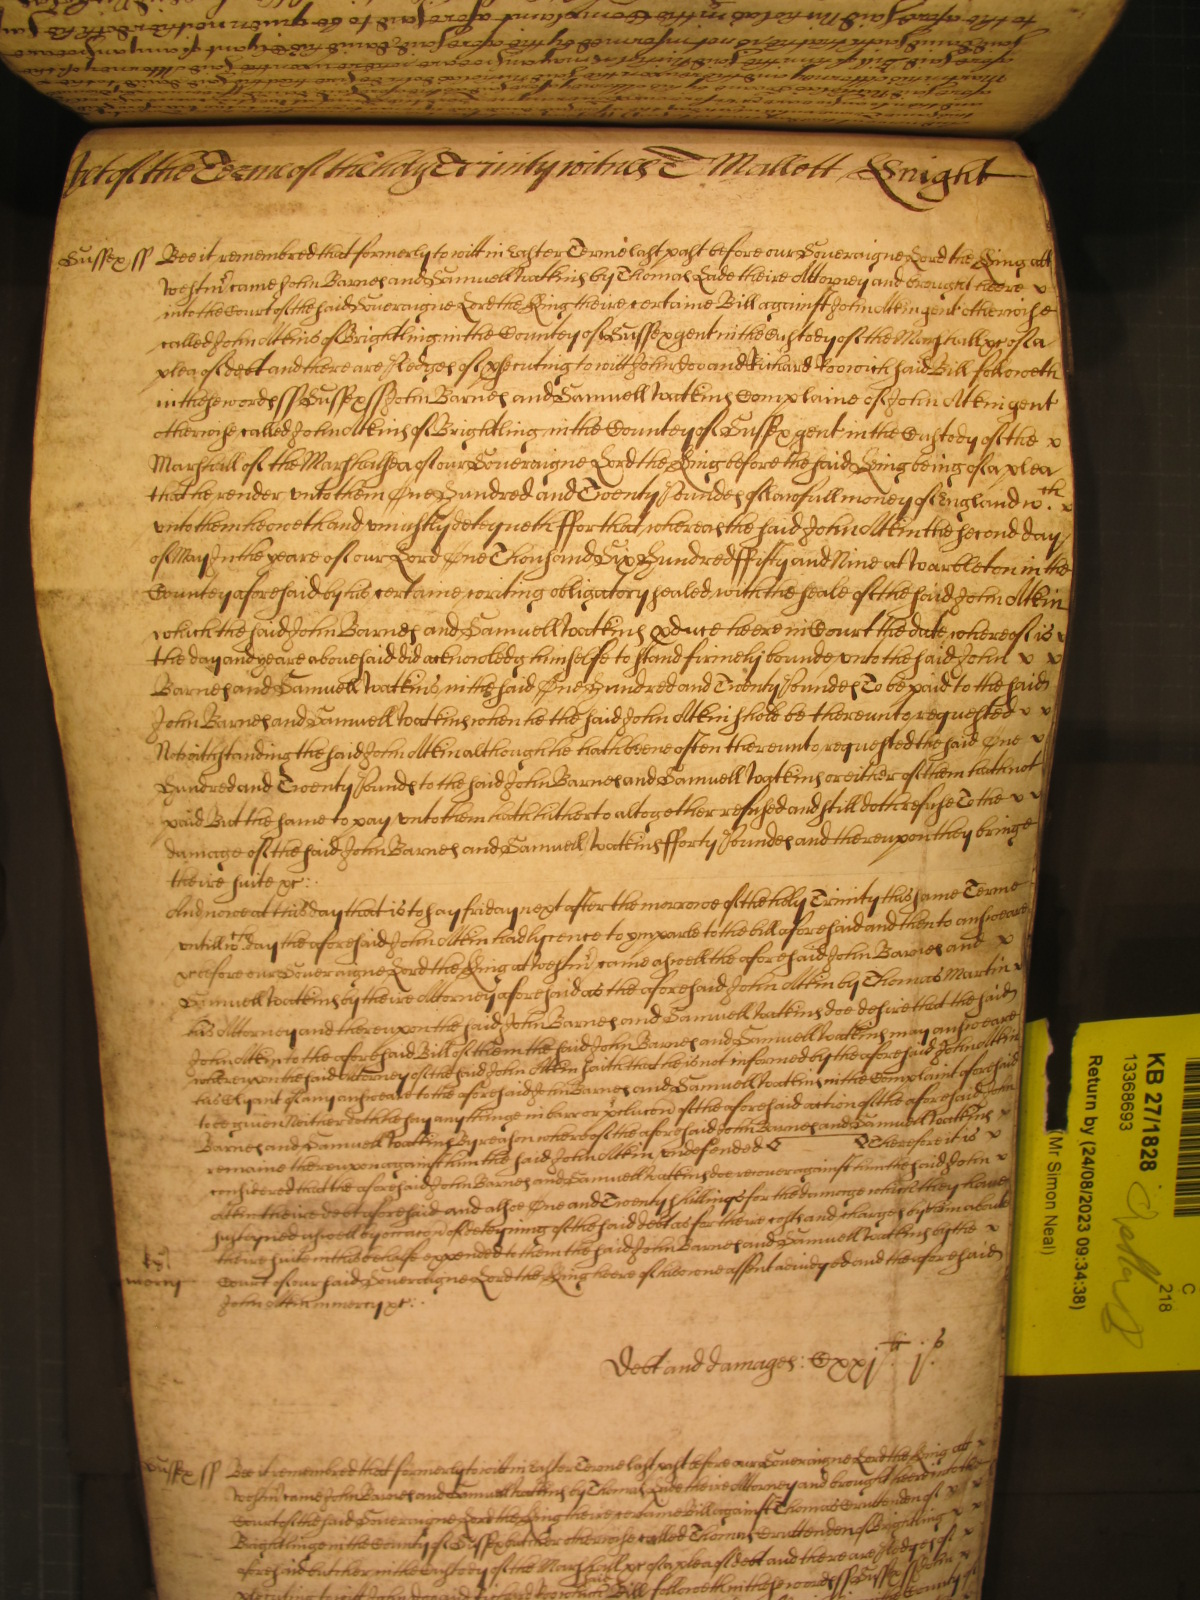 yet of the Terme of the holy Trinity witnes T Mallett Knight
Sussex ss Bee it remembred that formerly to witt in Easter Terme last past before our Soveraigne Lord the King att
Westmr came John Barnes and Samuell Watkins by Thomas Lade theire Attorney and brought heere
into the Court of the said Soveraigne Lord the King theire certaine Bill against John Atkin gent otherwise
called John Atkins of Brightling in the Countey of Sussex gent in the Custody of the Marshall &c of a
plea of debt and there are Pledges of psecuting to witt John Doo and Richard Roo which said Bill followeth
in these words ss Sussex ss John Barnes and Samuell Watkins Complaine of John Atkin gent
otherwise called John Atkins of Brightling in the Countey of Sussex gent in the Custody of the
Marshall of the Marshalsea of our Soveraigne Lord the King before the said King being of a plea
that he render unto them One Hundred and Twenty Poundes of lawfull money of England wch
unto them he oweth and uniustly deteyneth ffor that whereas the said John Atkin the second day
of May In the yeare of our Lord One Thousand Six Hundred ffifty and Nine at Warbleton in the
Countey aforesaid by his certaine writing obligatory sealed with the seale of the said John Atkin
which the said John Barnes and Samuell Watkins pduce heere in Court the date whereof is
the day and yeare abovesaid did acknowledg himselfe to stand firmely bounde unto the said John
Barnes and Samuell Watkins in the said One Hundred and Twenty Poundes To be paid to the said
John Barnes and Samuell Watkins when he the said John Atkin shold be thereunto requested
Notwithstanding the said John Atkin although he hath beene often thereunto requested the said One
Hundred and Twenty Pounds to the said John Barnes and Samuell Watkins or either of them hath not
paid But the same to pay unto them hath hitherto altogether refused and still doth refuse To the
damage of the said John Barnes and Samuell Watkins fforty Poundes and thereupon they bringe
theire suite &c:
And nowe at this day that is to say friday next after the morrowe of the holy Trinity this same Terme
untill wch day the aforesaid John Atkin had lycence to ymparle to the bill aforesaid and then to answeare
&c before our Soveraigne Lord the King at Westmr came aswell the aforesaid John Barnes and
Samuell Watkins by theire Attorney aforesaid as the aforesaid John Atkin by Thomas Martin
his Attorney and thereupon the said John Barnes and Samuell Watkins doe desire that the said
John Atkin to the aforesaid Bill of them the said John Barnes and Samuell Watkins may answeare
whereupon the said attorney of the said John Atkin saith that he is not informed by the aforesaid John Atkin
his Clyant of any answeare to the aforesaid John Barnes and Samuell Watkins in the Complaint aforesaid
to be given Neither doth he say any thinge in barr or pclucon of the aforesaid action of the aforesaid John
Barnes and Samuell Watkins By reason whereof the aforesaid John Barnes and Samuell Watkins
remaine thereupon against him the said John Atkin undefended Therefore it is
considered that the aforesaid John Barnes and Samuell Watkins doe recover against him the said John
Atkin theire debt aforesaid and alsoe One and Twenty shillings for the damage which they have
susteyned aswell by occacon of deteyning of the said debt as for theire costs and charges by them about
theire suite in this behalfe expended to them the said John Barnes and Samuell Watkins by the
Court of our said Soveraigne Lord the King heere of theire owne assent adiudged and the aforesaid
mercy John Atkin in mercy &c:
Debt and damages: Cxxj li j s
Sussex ss Bee it remembred that formerly to witt in Easter Terme last past before our Soveraigne Lord the King att
Westmr came John Barnes and Samuell Watkins by Thomas Lade theire Attorney and brought heere into the
Court of the said Soveraigne Lord the King theire certaine Bill against Thomas Cruttenden of
Brightlinge in the County of Sussex butcher otherwise called Thomas Cruttenden of Brightling
aforesaid butcher in the Custody of the Marshall &c of a plea of debt and there are Pledges of
psecuting to witt John Doo and Richard Roo which Bill followeth in these words ss Sussex ss John
KB 27/1828
13368693
C
218
Return by (24/08/2023 09:34:38)
(Mr Simon Neal)